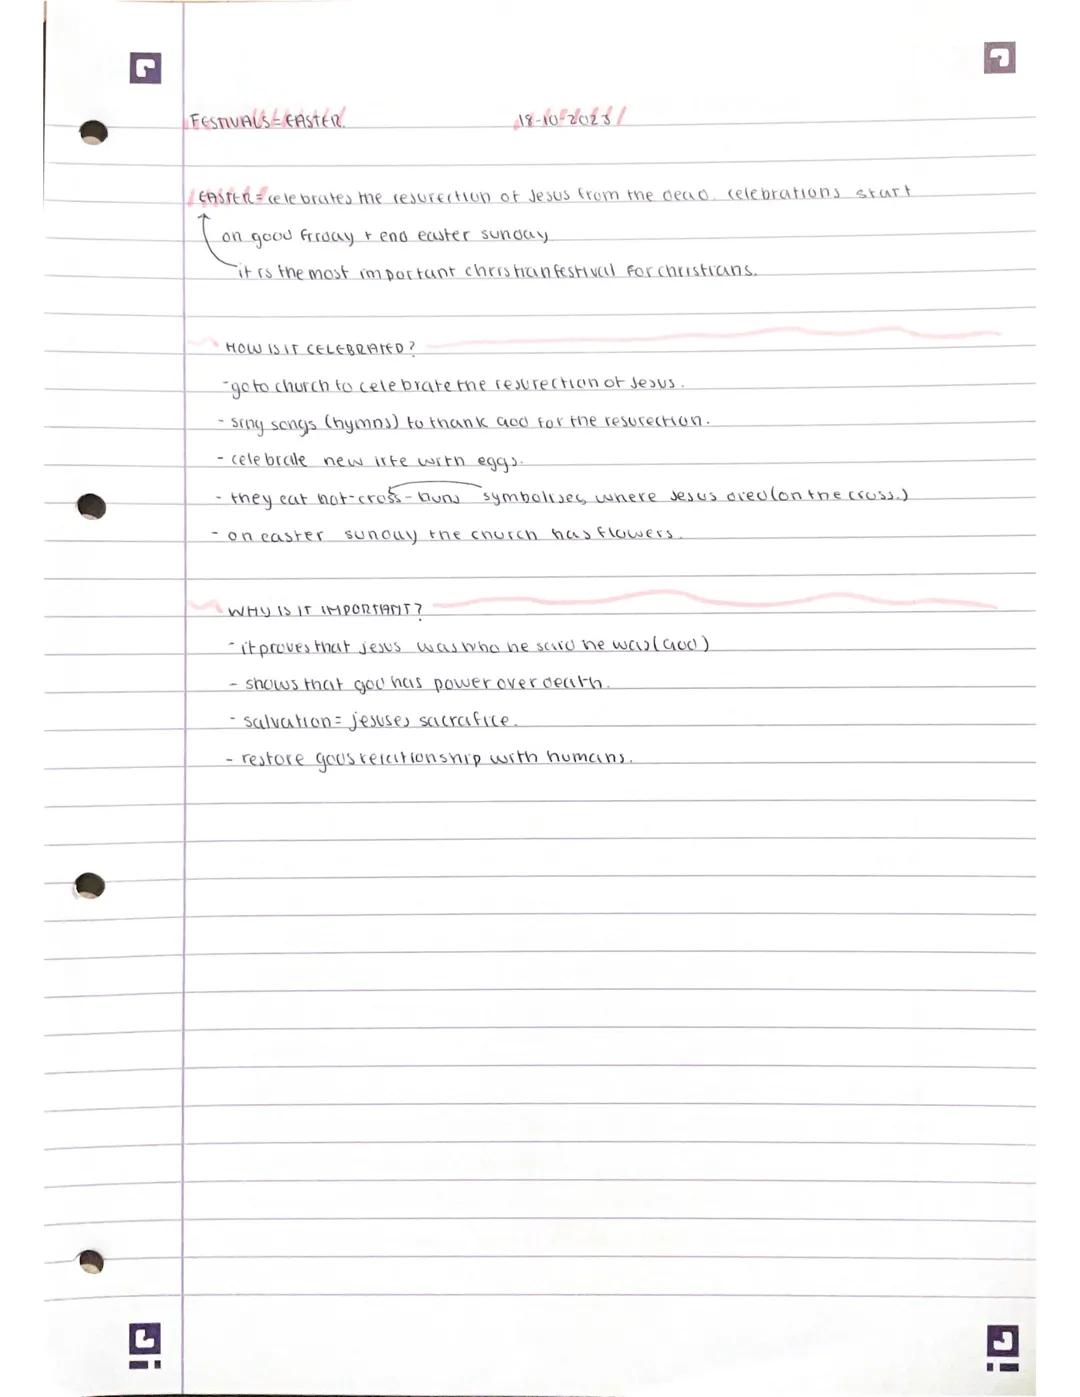 FESTIVALS = EASTER. 18-10-2023
EASTER = celebrates the resurection of Jesus from the dead. celebrations start
on good friday + end easter sunday
it is the most important christian festival for christians.
HOW IS IT CELEBRATED?
- go to church to celebrate the resurection of Jesus.
- sing songs (hymns) to thank God for the resurection.
- celebrate new life with eggs.
- they eat hot-cross-buns symbolises where Jesus died (on the cross.)
- on easter sunday the church has flowers.
WHY IS IT IMPORTANT?
- it proves that jesus was who he said he was (God)
- shows that god has power over death.
- salvation = jesuses sacrafice.
- restore gods relationship with humans.